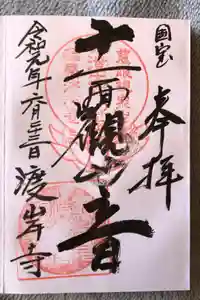 国宝
奉拝
十一面観世音
令和元年六月二十三日
渡岸寺